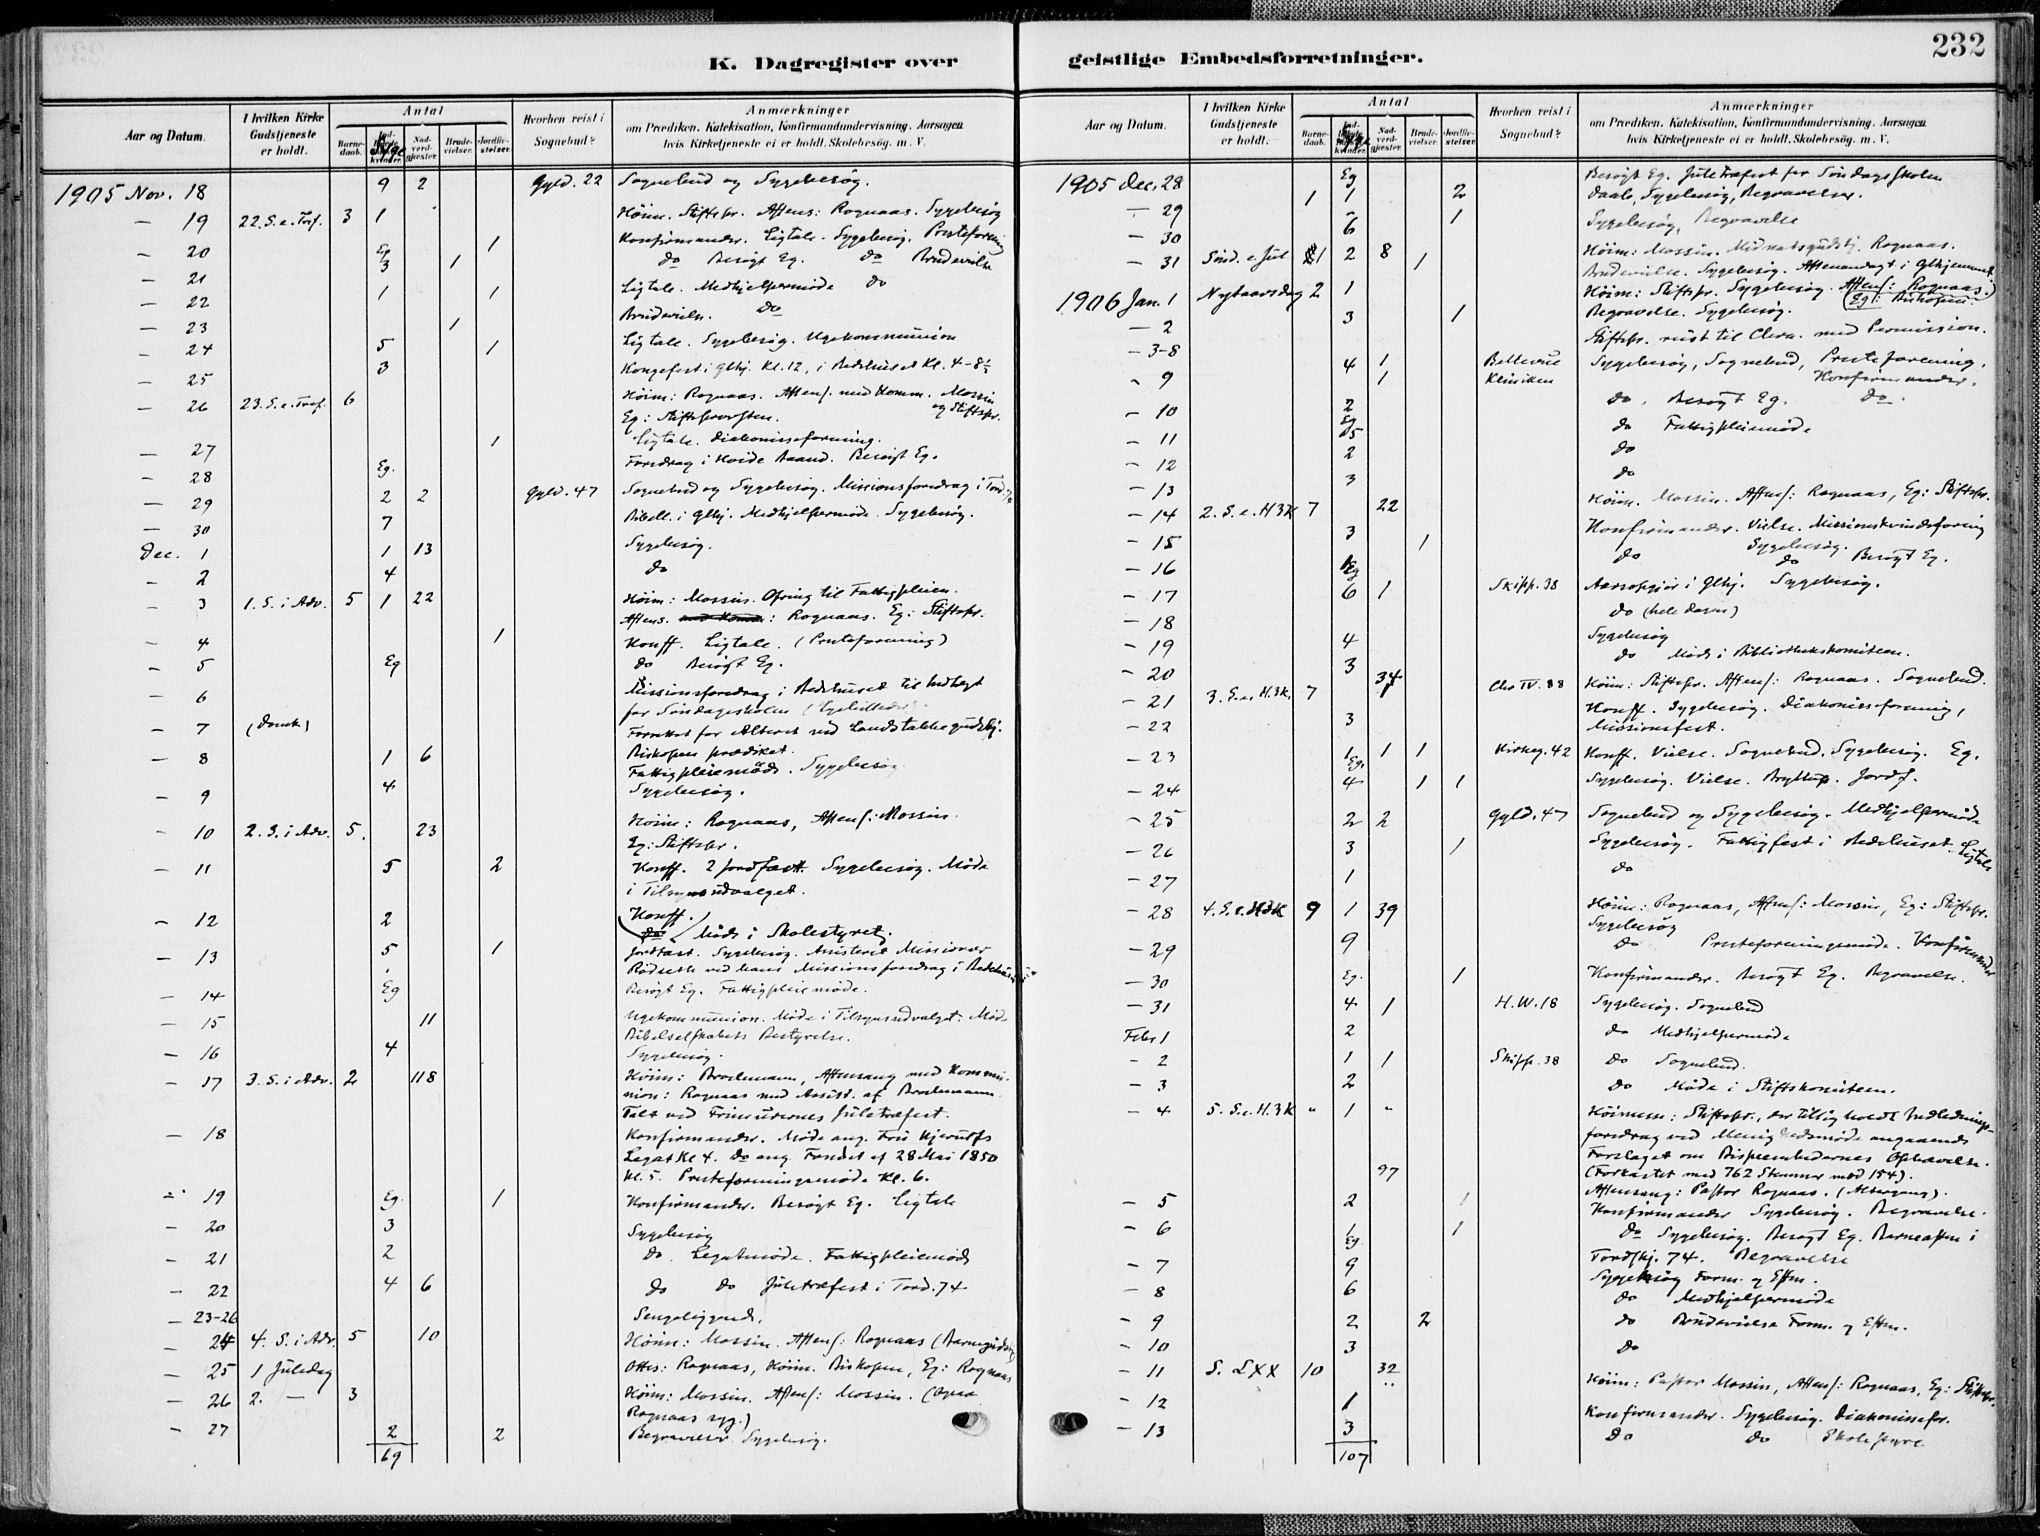 232
K. Dagregister over geistlige Embedsforretninger.
Aar og Datum. I hvilken Kirke Gudstjeneste er holdt. Antal Barne-daab. Syge Nad-verd-gjester. Brude-vielser. Jordfæ-stelser. Hvorhen reist i Sognebud? Anmærkninger
om Prædiken, Katekisation, Konfirmandundervisning, Aarsagen
hvis Kirketjeneste ei er holdt, Skolebesøg, m. V.
1905 Nov. 18 9 2 Gyld. 22 Sognebud og Sygebesøg.
— 19 22. S. e. Tref. 3 1 Høim. Stiftspr. Aftens: Rognaas. Sygebesøg
— 20 Eg 3 1 Konfirmander. Ligtale. Sygebesøg. Presteforening
— 21 1 do Besøgt Eg. do Brudevielse
— 22 1 1 Ligtale. Medhjelpermøde do
— 23 1 Brudeviels. do
— 24 5 1 Ligtale. Sygebesøg. Ugekommunion
— 25 3 Kongefest i Glhj. Kl. 12, i Bedehuset Kl. 4-8½
— 26 23. S. e. Tref. 6 Høim: Rognaas. Aftens. med Komm. Mossin og Stiftspr.
Eg: Stiftsprovsten.
— 27 1 Ligtale. Diakonisseforening.
— 28 Eg. Foredrag i Hvide Baand. Besøgt Eg.
— 29 2 2 Gyld. 47 Sognebud og Sygebesøg. Missionsforedrag i Tord. 74
— 30 7 Bibell. i Glhj. Medhjelpermøde. Sygebesøg.
Dec. 1 1 13 Sygebesøg.
— 2 4 do
— 3 1. S. i Adv. 5 1 22 Høim: Mossin. Ofring til Fattigpleien.
Aftens. med Komm: Rognaas. Eg: Stiftspr.
— 4 1 Konff. Ligtale. (Presteforening)
— 5 Eg do Besøgt Eg.
— 6 Missionsforedrag i Bedehuset til Indtægt
for Søndagsskolen
— 7 (Domk) Forrettet for Alteret ved Landstakkegudstj.
Biskopen prædiket.
— 8 1 6 Fattigpleiemøde. Sygebesøg
— 9 4 Sygebesøg.
— 10 2. S. i Adv. 5. 23 Høim: Rognaas, Aftens: Mossin.
Eg: Stiftspr.
— 11 5 2 Konff. 2 Jordfæst. Sygebesøg. Møde
i Tilsynsudvalget.
— 12 2 Konff.
do Møde i Skolestyret.
— 13 5 1 Jordfæst. Sygebesøg. Assisteret Missionær
Rødseth ved hans Missionsforedrag i Bedehuset
— 14 Eg Besøgt Eg. Fattigpleiemøde.
— 15 11 Ugekommunion. Møde i Tilsynsudvalget. Møde
Bibelselskabets Bestyrelse.
— 16 4 Sygebesøg.
— 17 3. S. i Adv. 2 118 Høim: Brochmann, Aftensang med Kommu-
nion: Rognaas med Assist. af Brochmann.
Talt ved Frimurernes Juletræfest.
— 18 Konfirmander. Møde ang. Frú Kjerulfs
Legat Kl 4. do ang. Fondet af 28 Mai 1850
Kl. 5. Presteforeningsmøde Kl. 6.
— 19 Eg. 1 Konfirmander. Besøgt Eg. Ligtale
— 20 3 Sygebesøg
— 21 2 do. Legatmøde. Fattigpleiemøde
— 22 4 6 do do Juletræfest i Tord. 74
— 23-26 Sengeliggende.
— 24 4. S. i Adv. 5 10 Høim: Mossin. Aftens: Rognaas (Barnegudstj.)
— 25 1 Juledag Ottes: Rognaas, Høim. Biskopen, Eg: Rognaas
— 26 2. — 3 Høim: Mossin. Aftens: Mossin. (
Rognaas syg.)
— 27 2 2 Begravelser. Sygebesøg.
69
Aar og Datum. I hvilken Kirke Gudstjeneste er holdt. Antal Barne-daab. Nad-verd-gjester. Brude-vielser. Jordfæ-stelser. Hvorhen reist i Sognebud? Anmærkninger
om Prædiken, Katekisation, Konfirmandundervisning, Aarsagen
hvis Kirketjeneste ei er holdt, Skolebesøg, m. V.
1905 Dec. 28 Eg Besøgt Eg. Juletræfest for Søndagsskolen
— 29 1 1 2 Daab, Sygebesøg, Begravelser.
— 30 6 1 Sygebesøg, Begravelse
— 31 Sønd. e. Jul 1 2 8 1 Høim: Mossin. Midnatsgudstj. Rognaas.
Brudevielse. Sygebesøg. Aftenandagt i Glhjemmet
1906 Jan. 1 Nytaarsdag 2 1 Høim: Stiftspr. Sygebesøg. Aftens: Rognaas
(Eg: Biskopen)
— 2 3 1 Begravelse. Sygebesøg.
— 3-8 Stiftspr. reist til Chra. med Permission.
— 9 4 1 1 Bellevue Kliniken Sygebesøg, Sognebud, Presteforening, Konfirmander.
— 10 2 Eg do. Besøgt Eg. do.
— 11 5 do Fattigpleiemøde
— 12 2 do
— 13 3 do
— 14 2. S. e. H3K 7 22 Høim. Mossin. Aftens: Rognaas, Eg: Stiftspr.
— 15 3 1 Konfirmander. Vielse. Missionskvindeforening
Sygebesøg.
— 16 Eg do do Besøgt Eg.
— 17 6 1 Skipp. 38 Aarsopgjør i Glhj. Sygebesøg.
— 18 do (hele dagen)
— 19 4 Sygebesøg
— 20 3 do Møde i Bibliothekskomiteen.
— 21 3. S. e. H.3K. 7 34 Chr IV. 88 Høim: Stiftspr. Aftens: Rognaas. Sognebud.
— 22 3 Konff. Sygebesøg. Diakonisseforening,
Missionsfest.
— 23 1 Eg. 1 1 Kirkeg. 42 Konff. Vielse. Sognebud. Sygebesøg. Eg.
— 24 4 1 1 Sygebesøg. Vielse. Bryllup. Jordf.
— 25 2 2 Gyld. 47 Sognebud og Sygebesøg. Medhjelpermøde
— 26 3 1 Sygebesøg. Fattigfest i Bedehuset. Ligtale
— 27 1 do
— 28 4. S. e. H3K 9 1 39 Høim: Rognaas, Aftens: Mossin, Eg: Stiftspr.
Sygebesøg
— 29 9 do Presteforeningsmøde. Konfirmander
— 30 Eg. 1 Konfirmander. Besøgt Eg. Begravelse.
— 31 4 1 H. W. 18 Sygebesøg. Sognebud
Febr 1 2 do Medhjelpermøde
— 2 1 1 Skipp. 38 do Sognebud.
— 3 2 do Møde i Stiftskomiteen.
— 4 5. S. e. H. 3K „ 1 „ Høimesse: Stiftspr., der tillig holdt Indlednings-
foredrag ved Menighedsmøde angaaende
Forslaget om Bispeembedernes Ophævelse.
97 (Forkastet med 762 Stemmer mod 154).
Aftensang: Pastor Rognaas. (Altergang).
— 5 2 1 Konfirmander Sygebesøg. Begravelse.
— 6 1 Eg 1 do Sygebesøg. Besøgt Eg. Barneaften i
Tordskj. 74. Begravelse
— 7 9 Sygebesøg Form. og Eftm.
— 8 6 do Medhjelpermøde
— 9 2 2 do Brudevielse Form. og Eftm.
— 10 3 do
— 11 S. LXX 10 32 Høim: Pastor Mossin, Aftens: Rognaas, Eg: Stiftspr.
— 12 1 Konfirmander. Sygebesøg. Diakonissefor.
— 13 3 do do Skolestyre
107